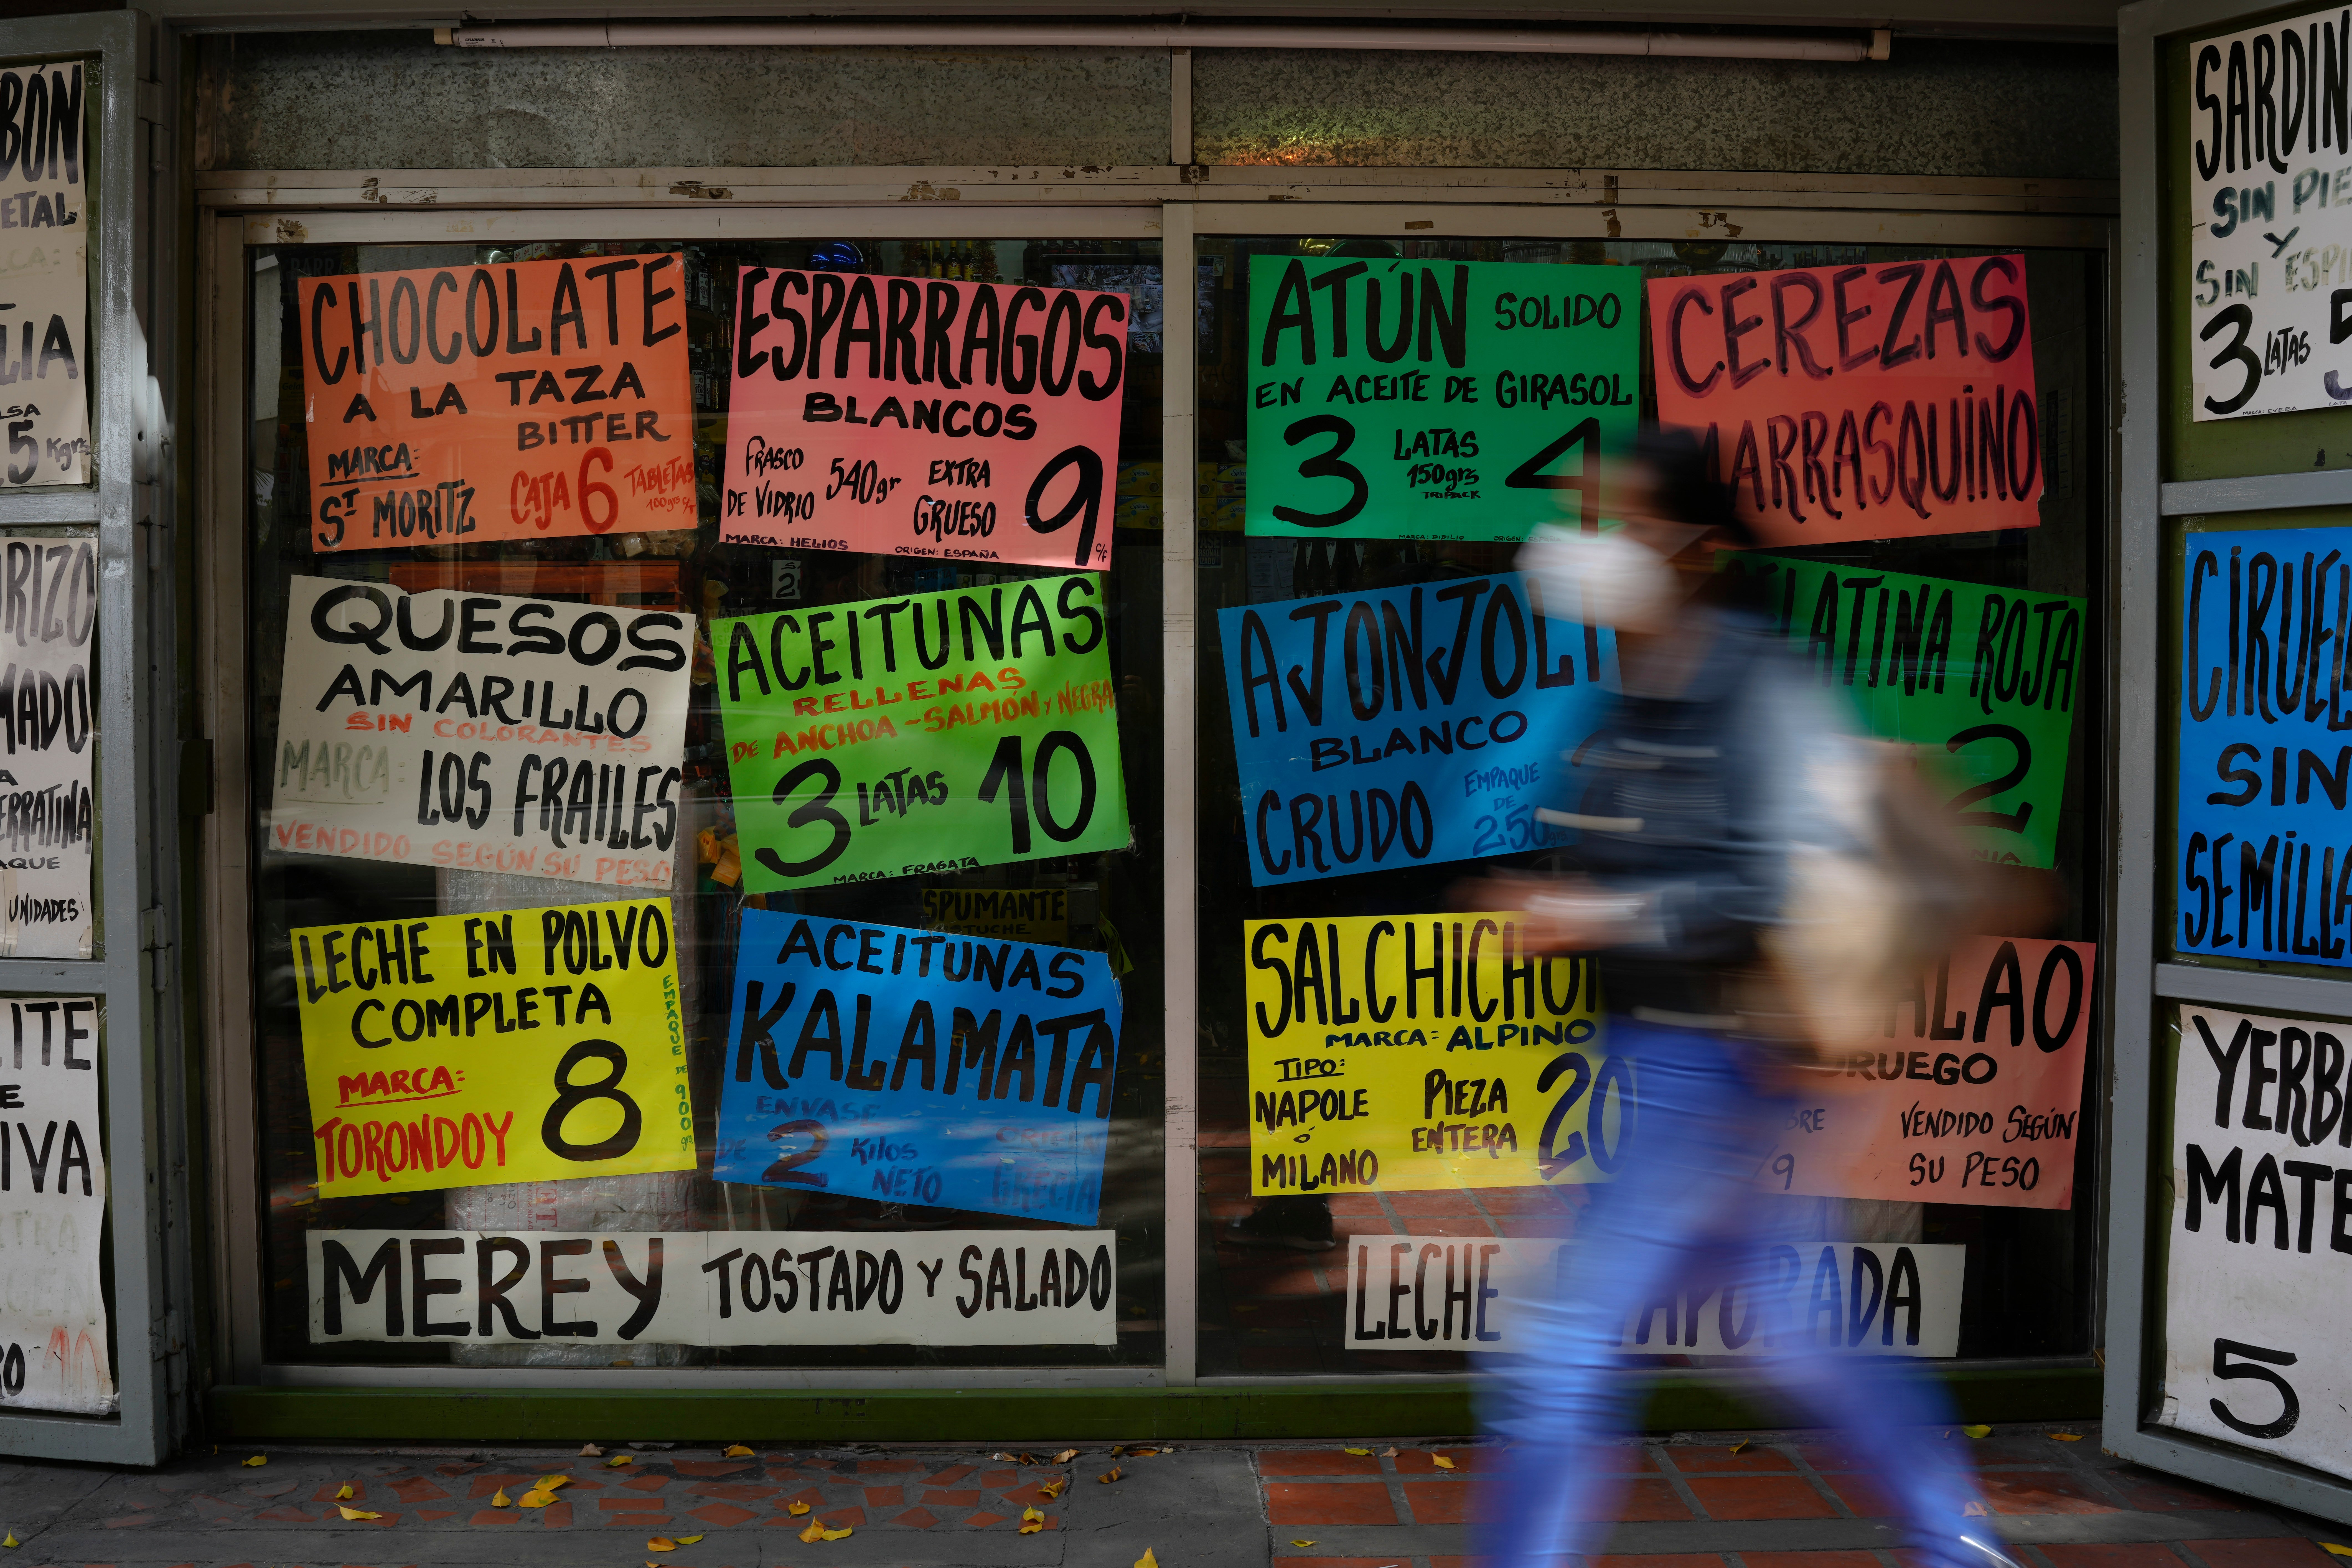 CHOCOLATE
A LA TAZA
BITTER
MARCA:
ST MORITZ
CAJA 6 TABLETAS
100grs c/T
ESPARRAGOS
BLANCOS
FRASCO
DE VIDRIO
540gr
EXTRA
GRUESO
9
C/F
MARCA: HELIOS
ORIGEN: ESPAÑA
ATÚN SOLIDO
EN ACEITE DE GIRASOL
3 LATAS 4
150grs
TRIPACK
CEREZAS
MARRASQUINO
QUESOS
AMARILLO
SIN COLORANTES
MARCA: LOS FRAILES
VENDIDO SEGÚN SU PESO
ACEITUNAS
RELLENAS
DE ANCHOA-SALMÓN Y NEGRA
3 LATAS 10
MARCA: FRAGATA
AJONJOLI
BLANCO
CRUDO
EMPAQUE
DE
250grs
LATINA ROJA
2
SPUMANTE
LECHE EN POLVO
COMPLETA
MARCA:
TORONDOY
8
EMPAQUE DE 900gr
ACEITUNAS
KALAMATA
ENVASE
DE 2 Kilos
NETO
ORIGEN
GRECIA
SALCHICHO
MARCA: ALPINO
TIPO:
NAPOLE
ó
MILANO
PIEZA
ENTERA
20
ALAO
ORUEGO
VENDIDO SEGÚN
SU PESO
MEREY TOSTADO Y SALADO
LECHE APORADA
BÓN
ETAL
LIA
5 Kgrs
RIZO
MADO
ERRATINA
AQUE
UNIDADES
ITE
E
IVA
SARDIN
SIN PIE
Y
SIN ESPI
3 LATAS 5
CIRUEL
SIN
SEMILL
YERB
MATE
5